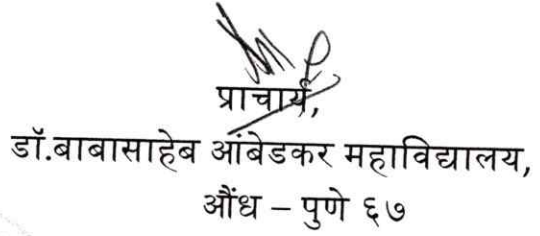 प्राचार्य,
डॉ.बाबासाहेब आंबेडकर महाविद्यालय,
औंध – पुणे ६७